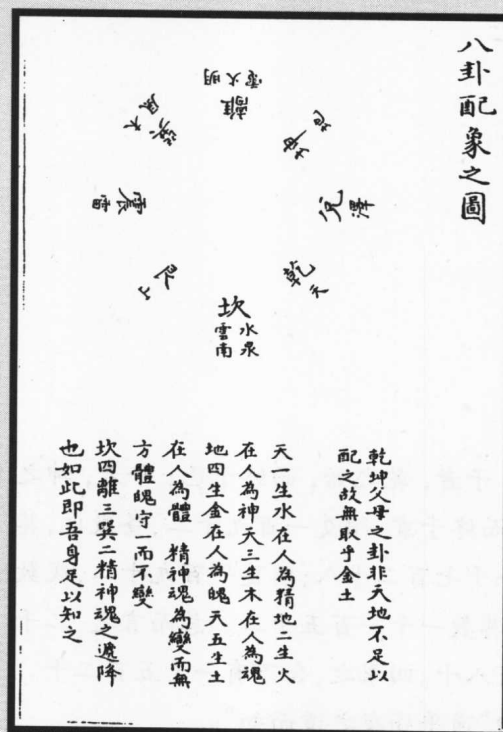 八卦配象之圖
離
電火明
坤
地
兌
澤
乾
天
坎
水泉
雲雨
艮
山
震
雷
巽
木
風
乾坤父母之卦非天地不足以
配之故無取乎金土
天一生水在人為精地二生火
在人為神天三生木在人為魂
地四生金在人為魄天五生土
在人為體 精神魂為變而無
方體魄守一而不變
坎四離三巽二精神魂之遞降
也如此即吾身足以知之